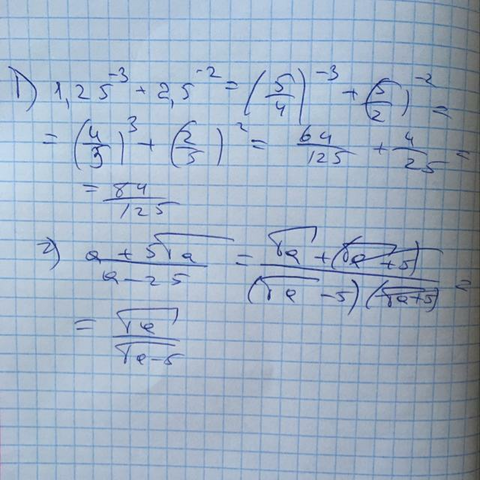 1) 1,25^-3 + 2,5^-2 = (5/4)^-3 + (5/2)^-2 =
= (4/5)^3 + (2/5)^2 = 64/125 + 4/25 =
= 84/125
2) a + 5√a / a - 25 = √a + (√a + 5) / (√a - 5)(√a + 5) =
= √a / √a - 5